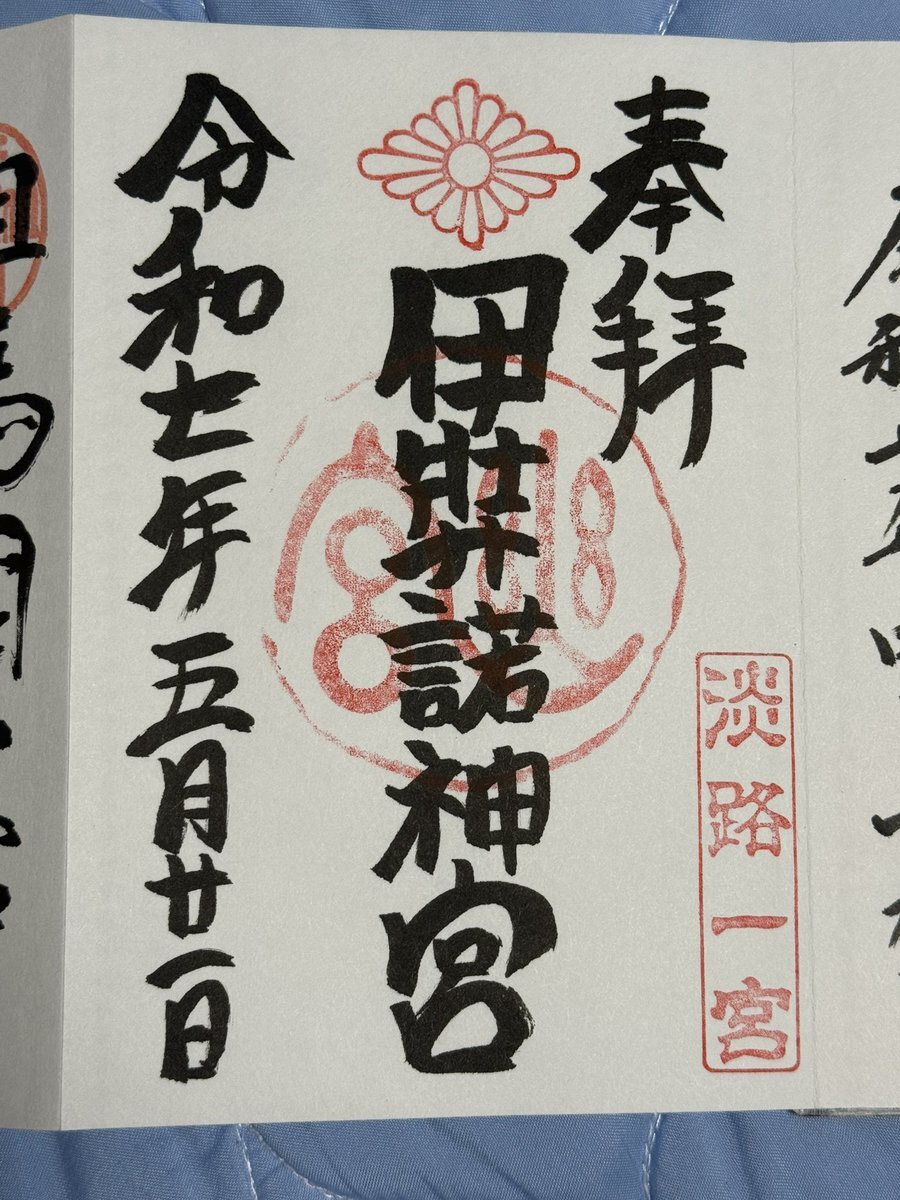 奉拝
淡路一宮
伊弉諾神宮
令和七年五月廿一日